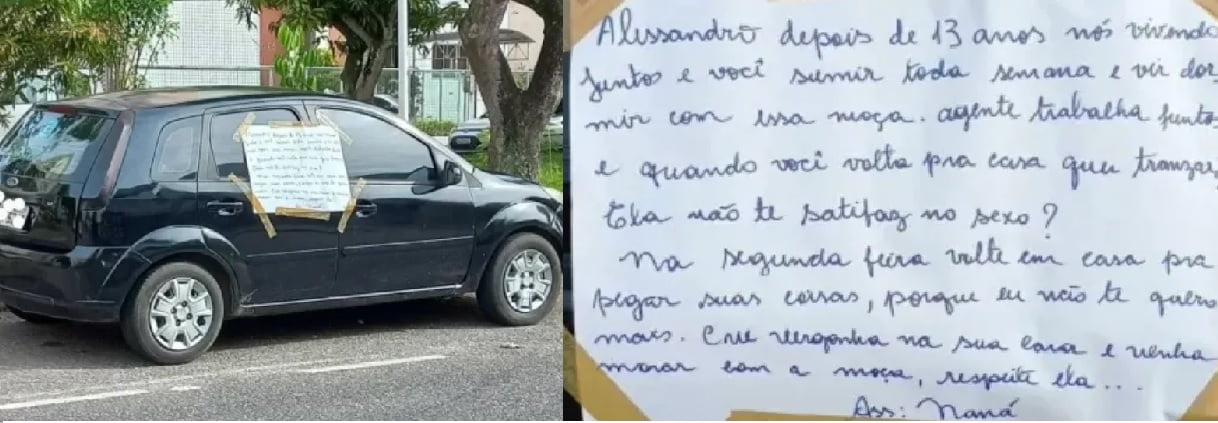 Alessandro depois de 13 anos nós vivendo
juntos e você sumir toda semana e vir dor
mir com essa moça. agente trabalha juntos
e quando você volta pra casa quer tranzar,
Ela não te satifaz no sexo?
Na segunda feira volte em casa pra
pegar suas coisas, porque eu não te quero
mais. Crie vergonha na sua cara e venha
morar com a moça, respeite ela...
Ass: Naná